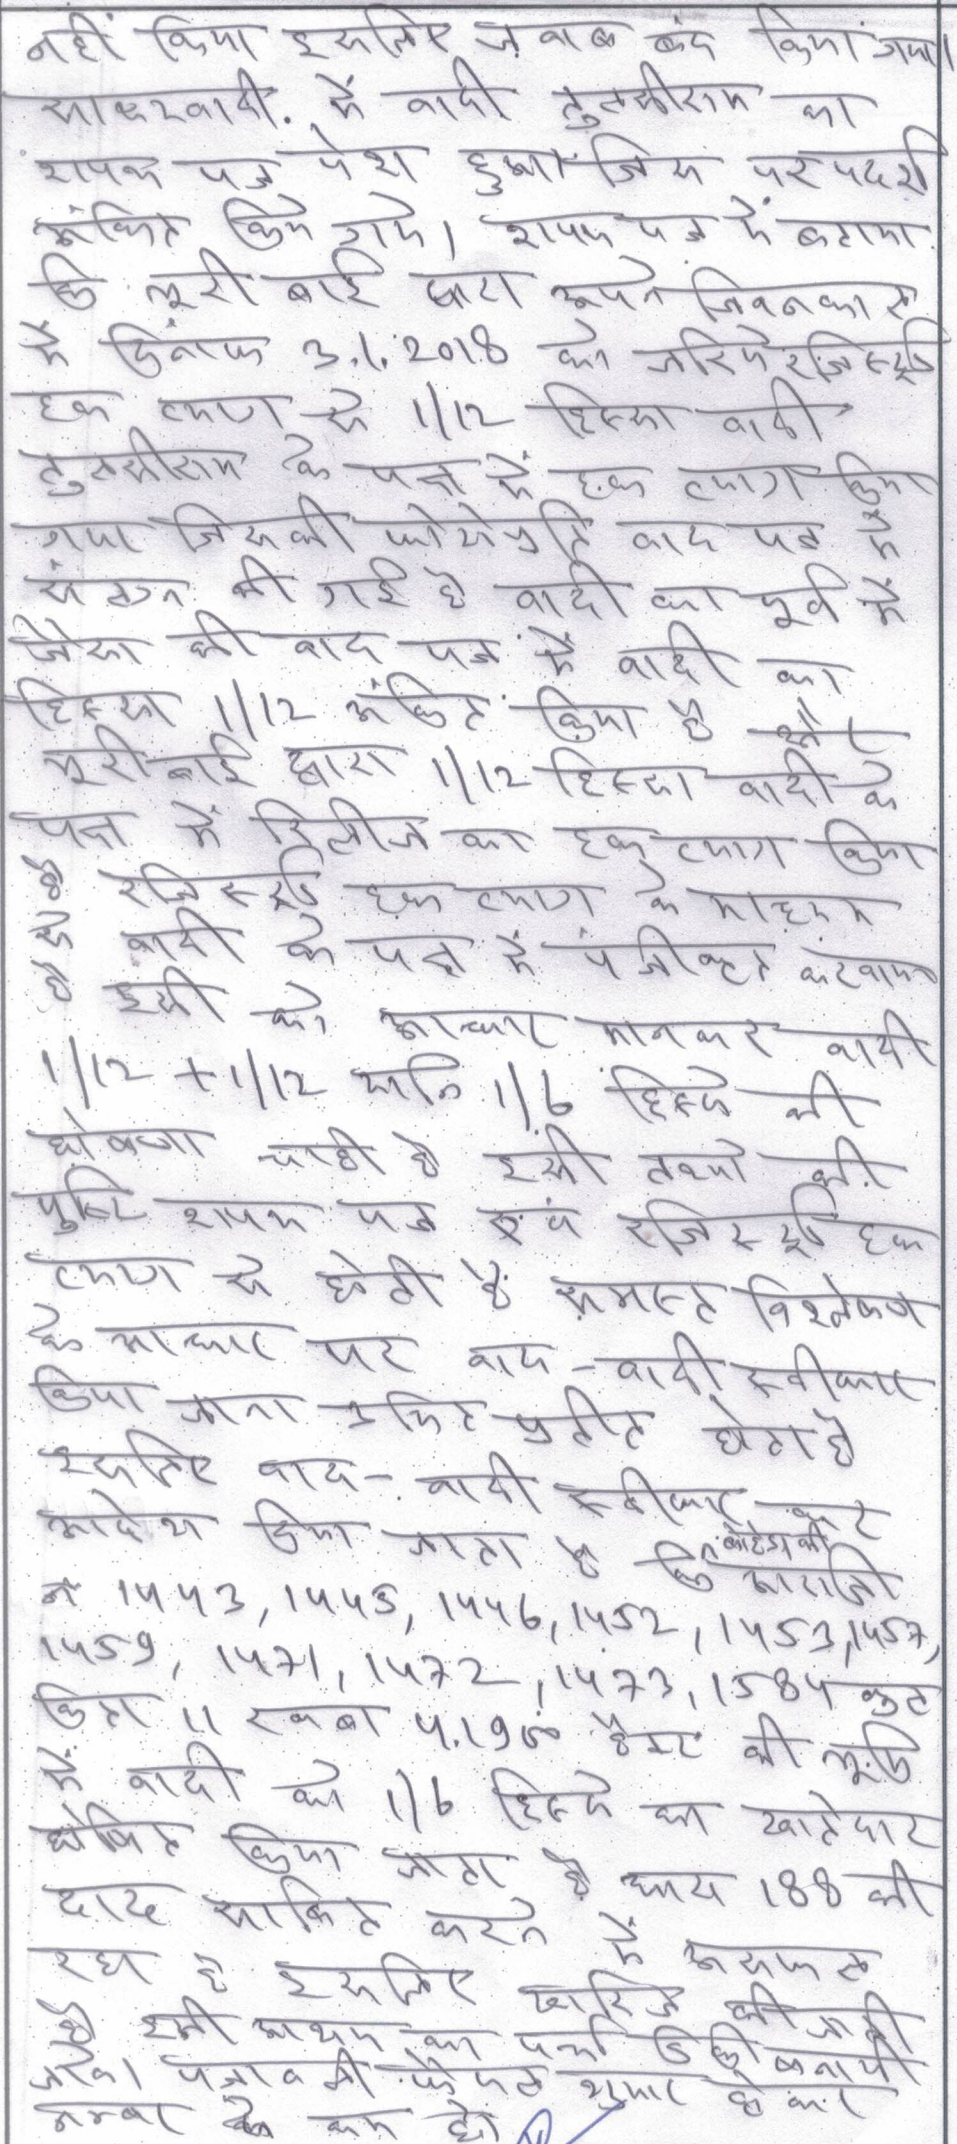 नहीं किया इसलिए जवाब बंद किया गया।
साक्ष्य वादी. में वादी तुलसीराम का
शपथ पत्र पेश हुआ जिस पर प्रदर्श
अंकित किये गये। शपथ पत्र में बताया
कि भूरी बाई द्वारा अपने जिवनकाल
में दिनांक 3.1.2018 को जरिये रजिस्ट्री
हक त्याग से 1/12 हिस्सा वादी
तुलसीराम के पक्ष में हक त्याग किया
गया जिसकी फोटोप्रति वाद पत्र में
संलग्न की गई है वादी का पूर्व में
जैसा की वाद पत्र में वादी का
हिस्सा 1/12 अंकित किया है और
भूरी बाई द्वारा 1/12 हिस्सा वादी के
पक्ष में रिलीज का हक त्याग किया
है रजिस्ट्री हक त्याग के माध्यम
से वादी के पक्ष में पंजीकृत करवाया
है इसी को आधार मानकर वादी
1/12 + 1/12 यानि 1/6 हिस्से की
घोषणा चाही है इसी तथ्यो की
पुष्टि शपथ पत्र एवं रजिस्ट्री हक
त्याग से होती है समस्त विश्लेषण
के आधार पर वाद - वादी स्वीकार
किया जाना उचित प्रतीत होता है
इसलिए वाद - वादी स्वीकार कर
आदेश किया जाता है कि आराजी
नं 1443, 1445, 1446, 1452, 1453, 1457,
1459, 1471, 1472, 1473, 1584 कुल
किता 11 रकबा 4.1900 हैक्ट की भूमि
में वादी को 1/6 हिस्से का खातेदार
घोषित किया जाता है धारा 188 की
दाद साबित करने में असफल
रहा है इसलिए खारिज की जाती
है इसी आशय का पर्चा डिक्री बनायी
जावे। पत्रावली फैसल शुमार होकर
नम्बर से कम हो।